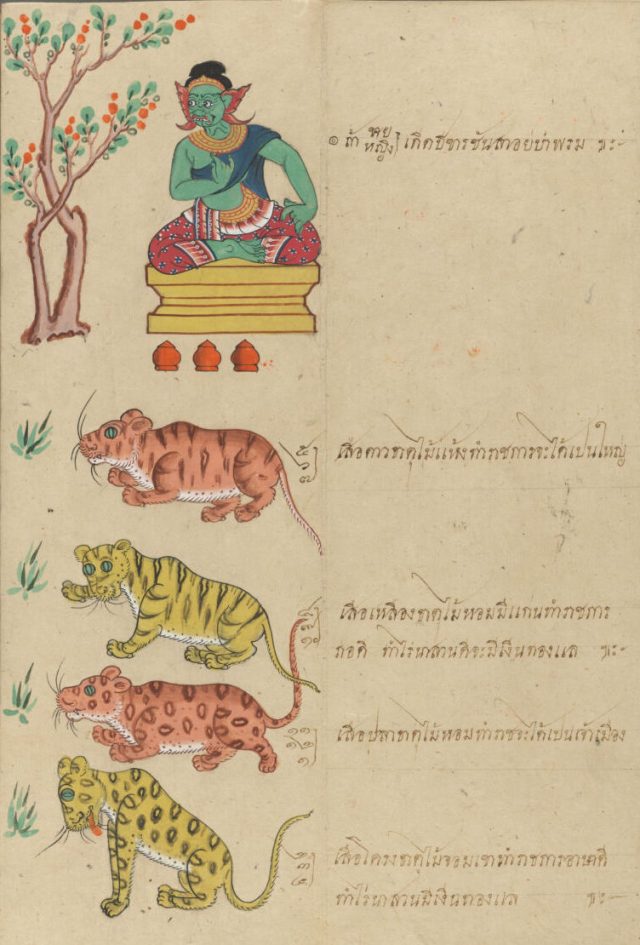 ๏ ถ้า ชาย หญิง] เกิดปีขารชันสาอยป่าพรม ฯะ
เสือดาวธาตุไม้แห้งทำราชการจะได้เปนใหญ่
เสือเหลืองธาตุไม้หอมมีแกนทำราชการ
ก็อดี ทำไร่นาสวนดีจะมีเงินทองแล ฯะ
เสือปลาธาตุไม้หอมทำราชจะได้เปนเจ้าเมือง
เสือโครงธาตุไม้จอมเขาทำราชการอาษาดี
ทำไร่นาสวนมีเงินทองแล ฯะ